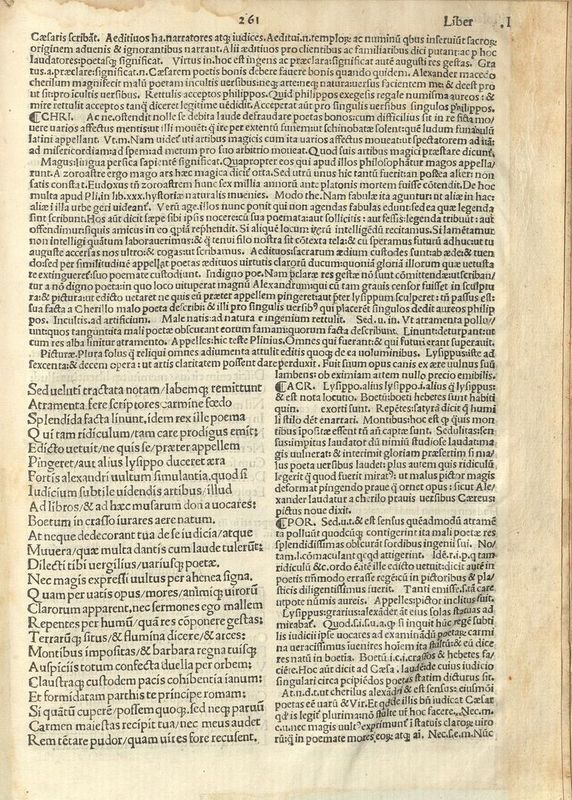 261
Liber .I
Cæsaris scribāt. Aeditiuos ha.narratores atq; iudices. Aeditui.n.templorꝫ ac numinū qbus inseruiūt sacroꝝ
originem aduenis & ignorantibus narrant. Alii æditiuos pro clientibus ac familiaribus dici putant: ac p hoc
laudatores: poetasq; significat. Virtus in.hoc est ingens ac præclara: significat autē augusti res gestas. Gra
tus.a.præclare: significat.n. Cæsarem poetis bonis debere fauere bonis quando quidem. Alexander macedo
cherilum magnifecit malū poetam incultis uersibus: neq; arte: neq; natura: uersus facientem me: & deest pro
ut sit: pro icultis uersibus. Rettulit acceptos philippos. Quid philippos exegesis regale numisma aureos: &
mire retulit acceptos tanq̄ diceret legitime uēdidit. Acceperat aūt pro singulis uersibus singulos philippos.
¶CHRI. Ac ne.ostendit nolle se debita laude defraudare poetas bonos: cum difficilius sit in re ficta mo/
uere uarios affectus mentis: ut illi mouēt: q̄ ire per extentū funem: ut schinobatæ solent: quē ludum funābulū
latini appellant. Vt.m. Nam uideť uti artibus magicis cum ita uarios affectus moueat: ut spectatorem ad irā:
ad misericordiam: ad spem: ad metum pro suo arbitrio moueat. Quod suis artibus magici præstare dicunť.
Magus: lingua persica sapientē significat. Quapropter eos qui apud illos philosophātur magos appella/
runt. A zoroastre ergo mago ars hæc magica dicit' orta. Sed utrū unus hic tantū fuerit: an postea alter: non
satis constat. Eudoxus tn̄ zoroastrem hunc sex millia annorū ante platonis mortem fuisse cōtendit. De hoc
multa apud Pli,in lib.xxx.hystoriæ naturalis inuenies. Modo the. Nam fabulæ ita aguntur: ut aliæ in hac:
aliæ i illa urbe geri uideant'. Verū age.illos nunc ponit qui non agendas fabulas edunt: sed ea quæ legenda
sunt scribunt. Hos aūt dicit sæpe sibi ipsis nocere: cū sua poemata: aut sollicitis: aut fessis: legenda tribuūt: aut
offendimur: si quis amicus in eo qppiā rephendit. Si aliquē locum iterū intelligēdū recitamus. Si lamētamur
non intelligi quātum laborauerimus: & q̄ tenui filo nostra sit cōtexta tela: & cū speramus futurū adhuc: ut tu
auguste accersas nos ultro: & cogas: ut scribamus. Aedituos: sacratum ædium custodes sunt: ab ædē & tuen
do: sed per similitudinē appellat poetas æditus uirtutis clarorū ducum: quoniā gloria illorum quæ uetusta
te extinguereť: suo poemate custodiunt. Indigno poe. Nam pclaræ res gestæ nō sunt cōmittendæ: ut scriban/
tur a nō digno poeta: in quo loco uituperat magnū Alexandrum: qui cū tam grauis censor fuisset in sculptu
ra: & pictura: ut edicto uetaret ne quis eū præter appellem pingeret: aut pter lysippum sculperet: tn̄ passus est:
sua facta a Cherillo malo poeta describi & illi pro singulis uersib⁹ qui placerēt singulos dedit aureos philip
pos. Incultis.ad artificium. Male natis: ad naturā e ingenium retulit. Sed.u.in. Vt atramenta pollu/
unt: unqs tangunt: ita mali poetæ obscurant eorum famam: quorum facta describunt. Linunt: deturpant: ut
cum res alba linitur atramento. Appelles: hic teste Plinius. Omnes qui fuerant: & qui futuri erant superauit.
Picturæ. Plura solus q̄ reliqui omnes adiumenta attulit: editis quoq; de ea uoluminibus. Lysippus: iste ad
sexcenta: & decem opera: ut artis claritatem possent dare: perduxit. Fuit suum opus canis ex ære uulnus suū
lambens: ob eximiam artem nullo precio emibilis.
Sed ueluti tractata notam/labemq; remittunt
Atramenta fere scriptores carmine fœdo
Splendida facta linunt, idem rex ille poema
Qui tam ridiculum/tam care prodigus emit:
Edicto uetuit/ne quis se/præter appellem
Pingeret/aut alius lysippo duceret æra
Fortis alexandri uultum simulantia, quod si
Iudicium subtile uidendis artibus/illud
Ad libros/& ad hæc musarum dona uocares:
Bœotum in crasso iurares aere natum.
At neque dedecorant tua de se iudicia/atque
Munera/quæ multa dantis cum laude tulerūt:
Dilecti tibi uergilius/uariusq; poetæ.
Nec magis expressi uultus per ahenea signa.
Quam per uatis opus/mores/animīq; uirorū
Clarorum apparent, nec sermones ego mallem
Repentes per humū/quā res cōponere gestas:
Terrarūq; situs/& flumina dicere/& arces:
Montibus impositas/& barbara regna tuisq;
Auspiciis totum confecta duella per orbem:
Claustraq; custodem pacis cohibentia ianum:
Et formidatam parthis te principe romam:
Si quātū cuperē/possem quoq; sed neq; paruū
Carmen maiestas recipit tua/nec meus audet
Rem tētare pudor/quam uires fore recusent.
¶ACR. Lysippo.alius lysippo.i.alius q̄ lysippus:
& est nota locutio. Boetū: boeti hebetes sunt habiti
quin. exorti sunt. Repētes: satyrā dicit q̄ humi
li stilo dēt enarrari. Montibus: hoc est q̄ quis mon
tibus ipositæ essent tn̄ an captæ sunt. Sedulitas: sen
sus: inuitus laudator dū nimiū studiose laudat: ma
gis uulnerat: & interimit gloriam præsertim si ma/
lus poeta uersibus laudet: plus autem quis ridiculū
legerit q̄ quod fuerit mirat': ut malus pictor magis
deformat pingendo praue q̄ ornet opus: sicut Ale/
xander laudatur a cherilo prauis uersibus Cæreus:
pictus noue dixit.
¶POR. Sed.u.t.& est sensus quēadmodū atramē
ta polluūt quodcūq; contigerint ita mali poetæ res
splendidissimas obscurāt sordibus ingenii sui. No/
tam.l.cōmaculant qcqd attigerint. Idē.r.i.p.q tam
ridiculū &c.ordo ē.itē ille edicto uetuit: dicit autē in
poetis tn̄modo errasse regē: cū in pictoribus & pla/
sticis diligentissimus fuerit. Tanti emisse.s.tā care
utpote nūmis aureis. Appelles: pictor inclitus fuit.
Lysippus: grarius: alexāder āt eius solas statuas ad
mirabat'. Quod.s.i.s.u.a.q̄ si inquit hūc regē subti
lis iudicii ipse uocares ad examinādū poetaꝝ carmi
na ueracissimus iuenires hoiem ita stultū: & eū dice
res natū in boetia. Boetū.i.c.i.crassos & hebetes fa/
ciēre. Hoc aūt dicit ad Cæsa. laudēde cuius iudicio
singulari circa pcipiēdos poetas statim dicturus sit.
At.n.d.t.ut cherilus alexādri & est sensus: eiusmōi
poetas eē uarū & Vir. Et qdde illis bn̄ iudicat Cæsar
qd is legit plurima nō stulte uť hoc facere. Nec.m.
e.u.nec magis uulť exprimunť i statuis clarorꝫ uiro
rū: q̄ in poemate mores eorꝫ: atq; ai. Nec.s.e.m. Nūc